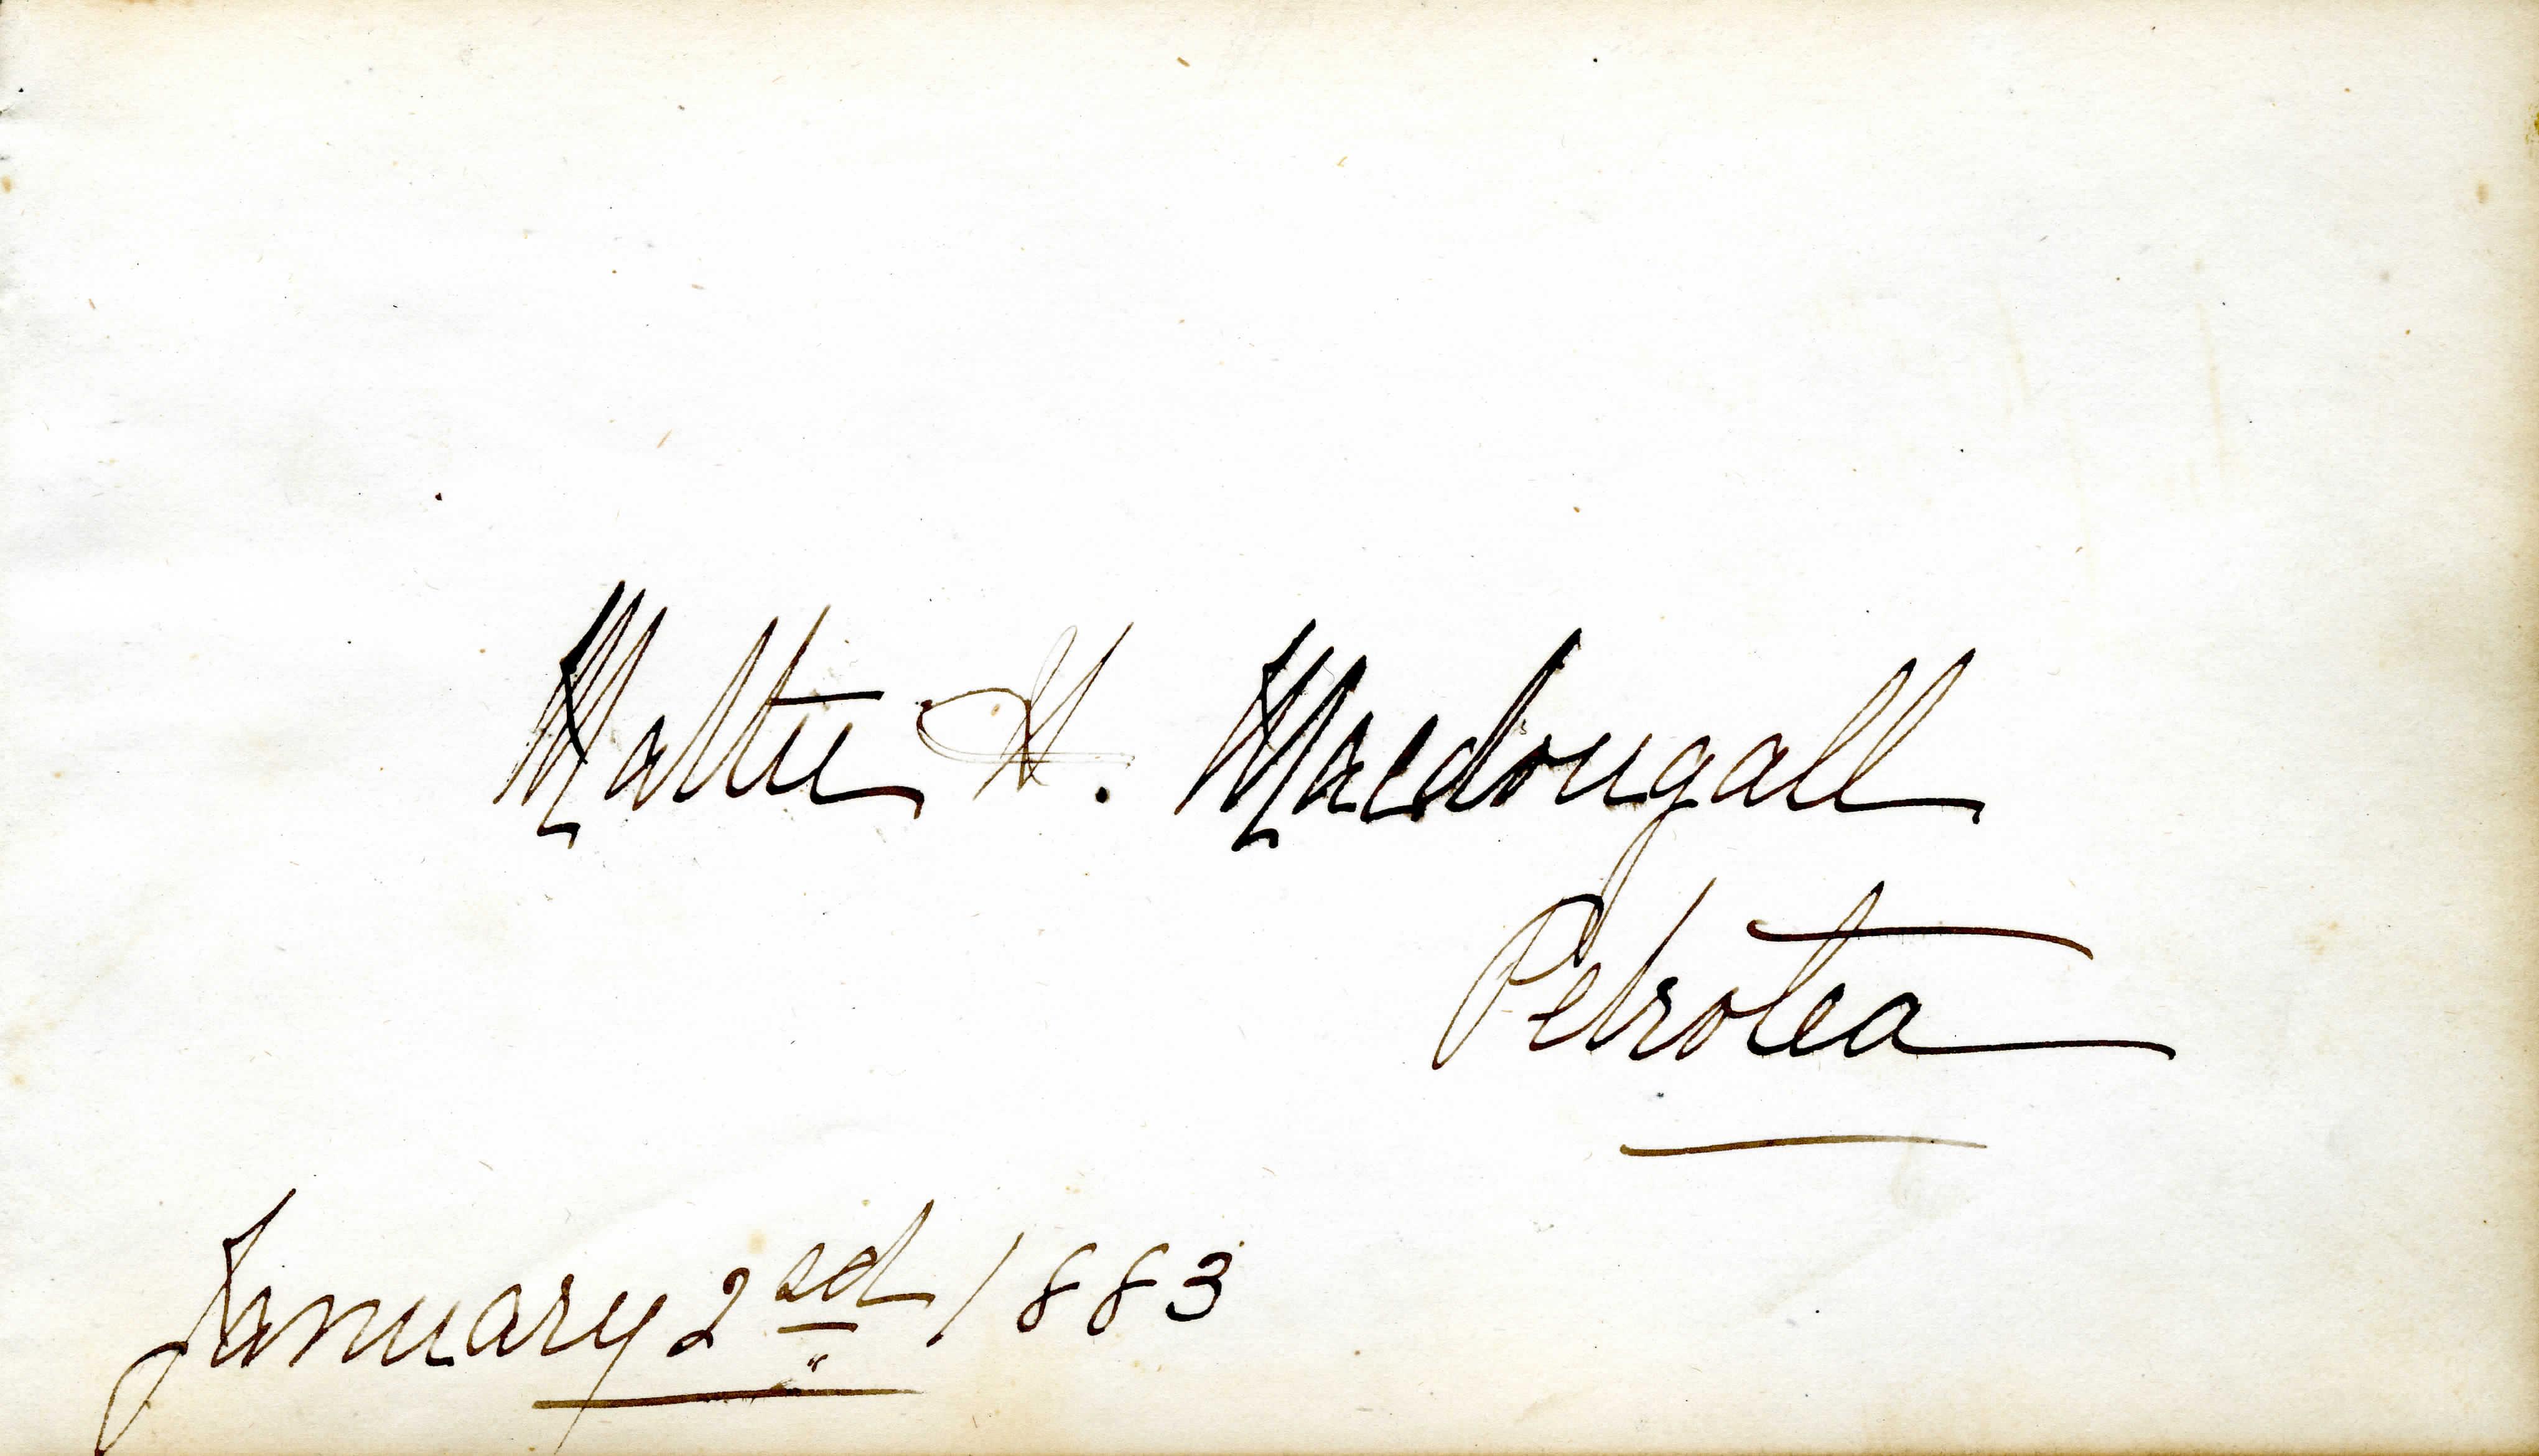 Mattie H. Macdougall
Petrolea
January 2nd 1883